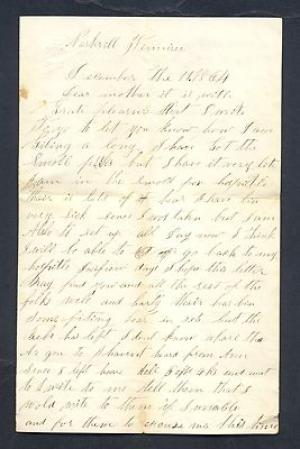 Nashvill Tennisee
December the 11 1864
Dear mother it is with
great pleasure that I write
to let you know how I am
giting a long I have got the
smoll pox but I have it very lite
I am in the smoll pox hospittle
their is lots of hear I have bin
very sick since I was taken but I am
Able to set up all day now I think
I will be able to go back to my
hospittle in a few days I hope this letter
may find you and all the rest of the
folks well and harty their has bin
some fiting hear in but the
rebs has left I dont know where tha
As you to I havent hard from
since I left home tell and
to write to me tell them that I
wold write to them if I was able
and for them to excuse me this time